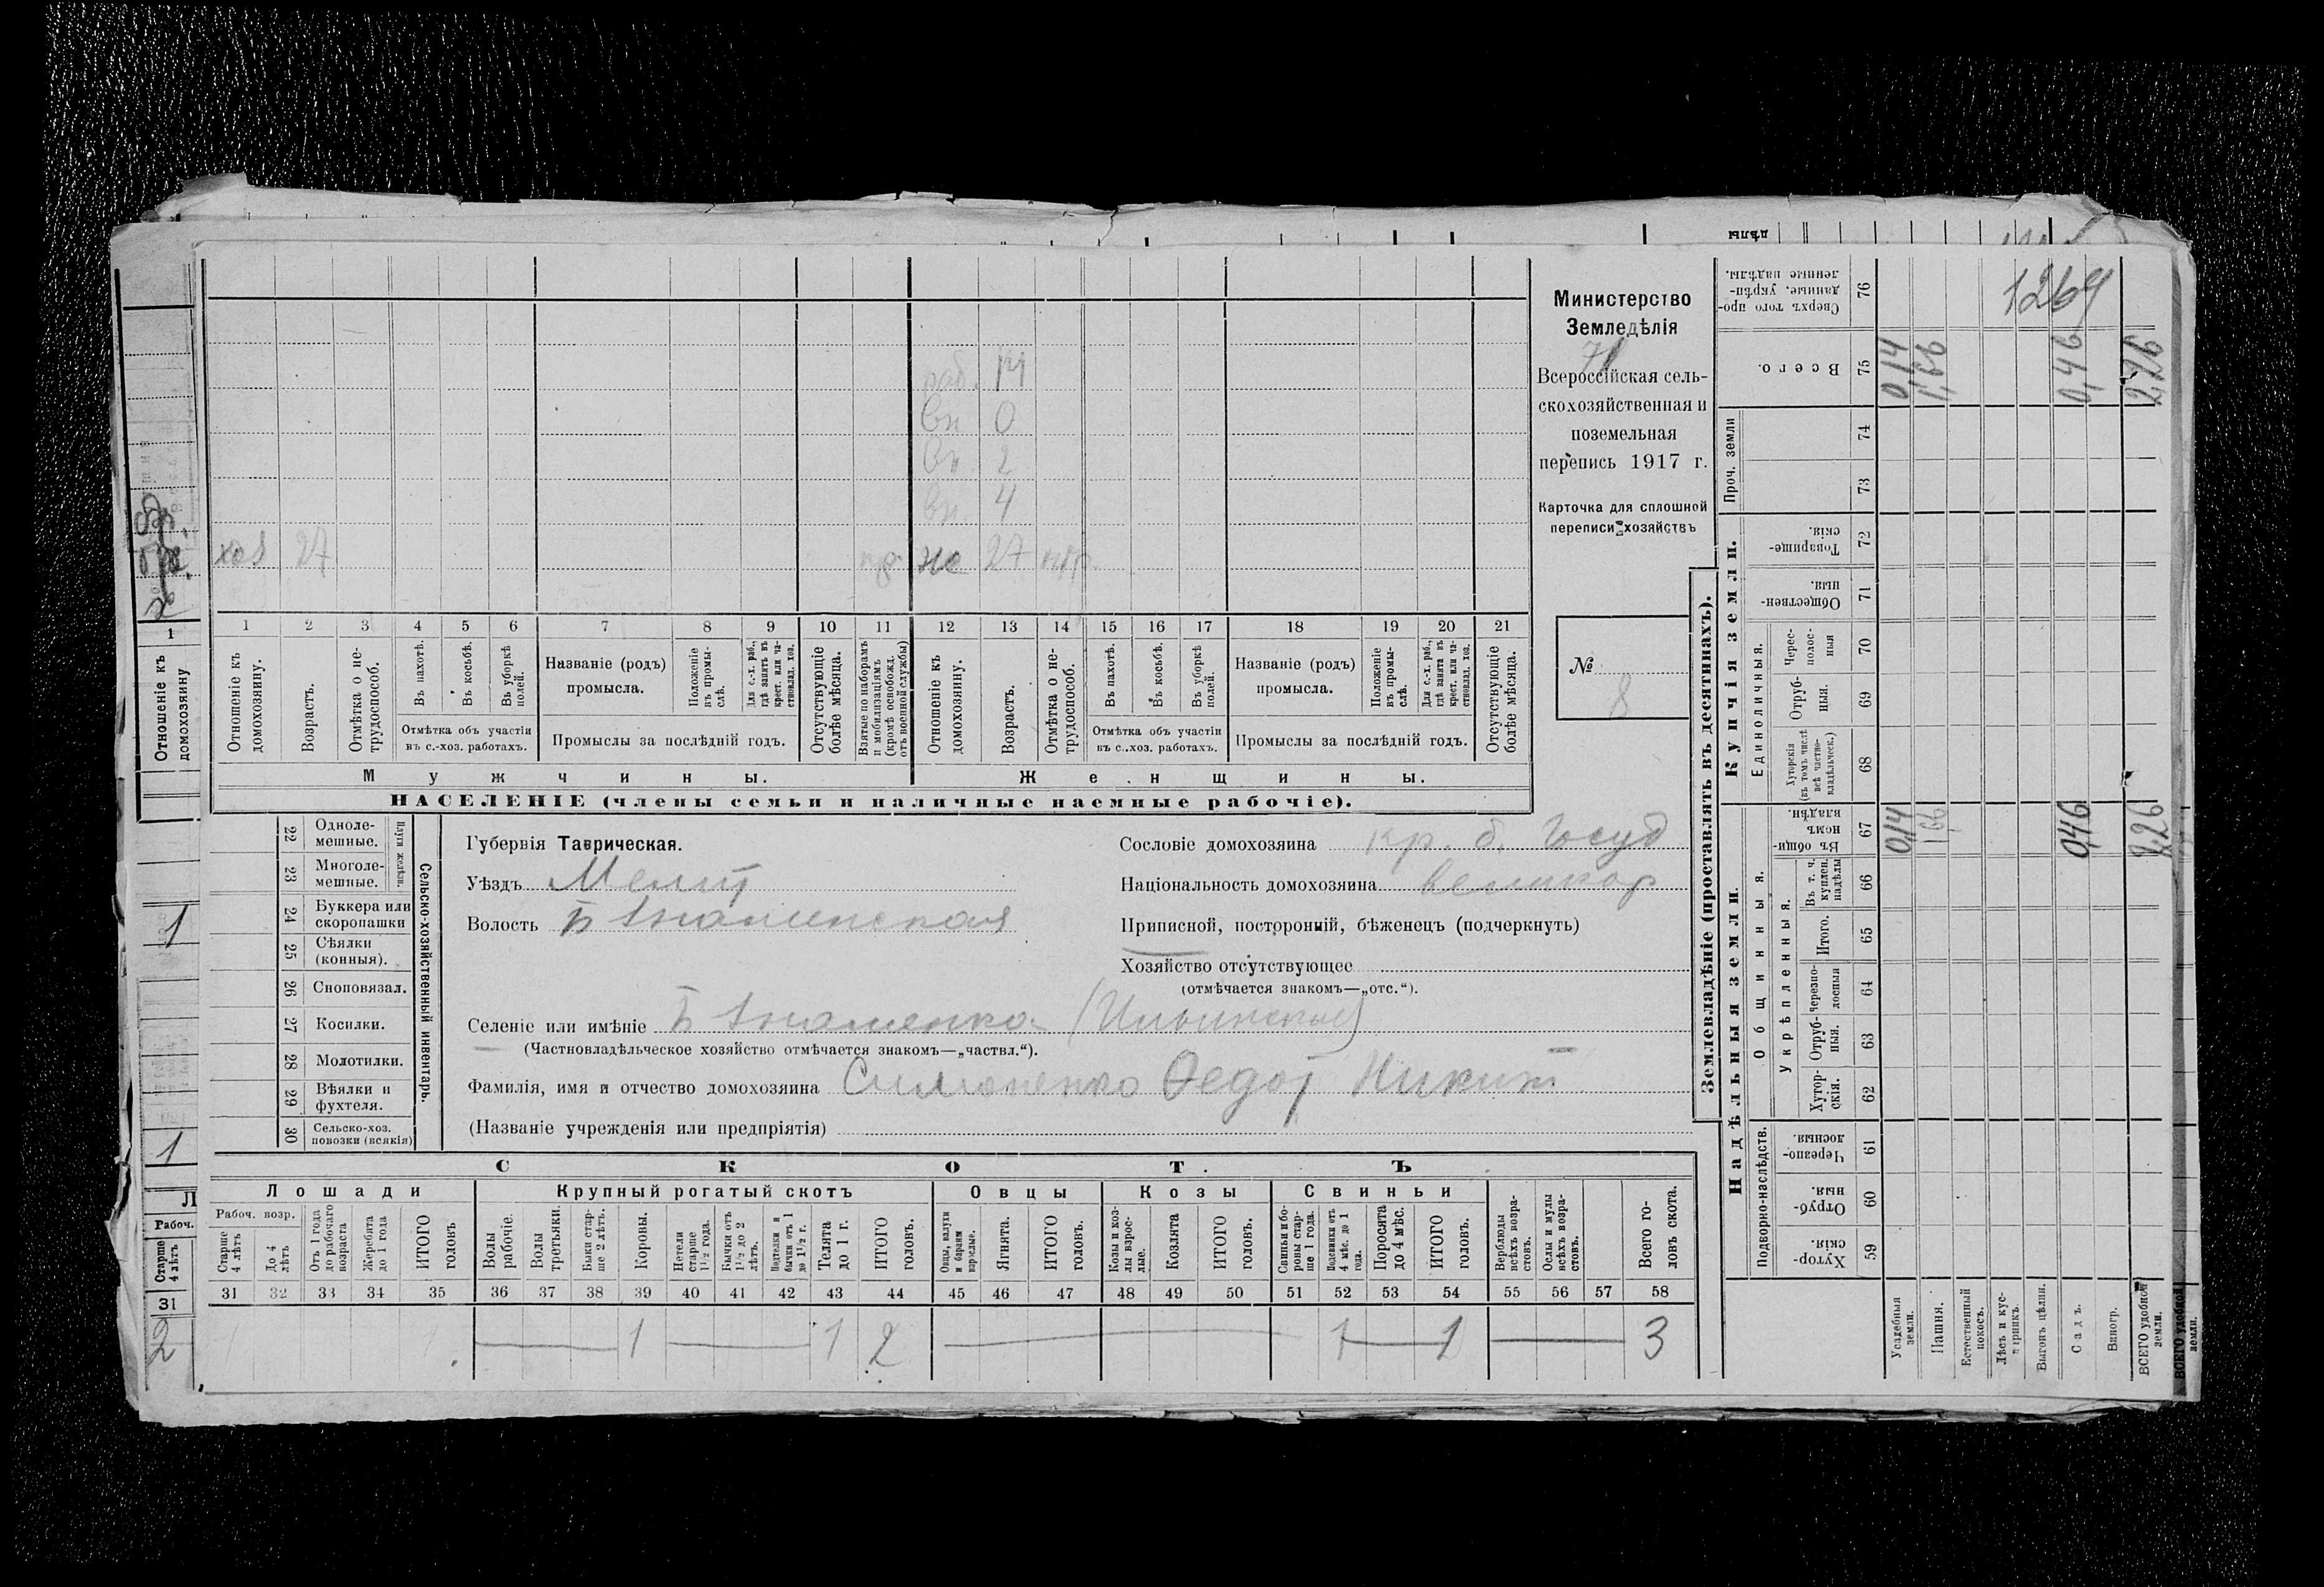 дѣлы
Министерство
Земледѣлія
Всероссійская сель-
скохозяйственная и
поземельная
перепись 1917 г.
Карточка для сплошной
переписи хозяйствъ
№
8
раб. 14
вн 0
вн 2
вн. 4
хоз 27
же 27
1 2 3 4 5 6 7 8 9 10 11 12 13 14 15 16 17 18 19 20 21
Отношеніе къ домохозяину.
Возрастъ.
Отмѣтка о не-трудоспособ.
Въ пахотѣ.
Въ косьбѣ.
Въ уборкѣ полей.
Отмѣтка объ участіи въ с.-хоз. работахъ.
Названіе (родъ) промысла.
Положеніе въ промы-слѣ.
Для с.-х. раб., гдѣ занятъ въ крест. или ча-стновлад. хоз.
Промыслы за послѣдній годъ.
Отсутствующіе болѣе мѣсяца.
Взятые по наборамъ и мобилизаціямъ (кромѣ освобожд. отъ военной службы)
Отношеніе къ домохозяину.
Возрастъ.
Отмѣтка о не-трудоспособ.
Въ пахотѣ.
Въ косьбѣ.
Въ уборкѣ полей.
Отмѣтка объ участіи въ с.-хоз. работахъ.
Названіе (родъ) промысла.
Положеніе въ промы-слѣ.
Для с.-х. раб., гдѣ занята въ крест. или ча-стновлад. хоз.
Промыслы за послѣдній годъ.
Отсутствующіе болѣе мѣсяца.
Мужчины.
Женщины.
НАСЕЛЕНІЕ (члены семьи и наличные наемные рабочіе).
22 Одноле-мешные.
23 Многоле-мешные.
Плуги желѣзн.
24 Буккера или скоропашки
25 Сѣялки (конныя).
26 Сноповязал.
27 Косилки.
28 Молотилки.
29 Вѣялки и фухтеля.
30 Сельско-хоз. повозки (всякія)
Сельско-хозяйственный инвентарь.
Губернія Таврическая.
Уѣздъ Мелит
Волость Б Знаменская
Сословіе домохозяина кр. б. Госуд
Національность домохозяина великор
Приписной, посторонній, бѣженецъ (подчеркнуть)
Хозяйство отсутствующее
(отмѣчается знакомъ—„отс.“).
Селеніе или имѣніе Б Знаменка (Ильинская)
(Частновладѣльческое хозяйство отмѣчается знакомъ—„частвл.“).
Фамилія, имя и отчество домохозяина Симоненко Федот Никит
(Названіе учрежденія или предпріятія)
СКОТЪ
Лошади
Крупный рогатый скотъ
Овцы
Козы
Свиньи
Рабоч. возр.
Старше 4 лѣтъ
До 4 лѣтъ
Отъ 1 года до рабочаго возраста
Жеребята до 1 года
ИТОГО головъ
Волы рабочіе.
Волы третьяки.
Быки стар-ше 2 лѣтъ.
Коровы.
Нетели старше 1½ года.
Бычки отъ 1½ до 2 лѣтъ.
Подтелки и бычки отъ 1 до 1½ г.
Телята до 1 г.
ИТОГО головъ.
Овцы, валухи и бараны взрослые.
Ягнята.
ИТОГО головъ.
Козы и коз-лы взрос-лые.
Козлята
ИТОГО головъ.
Свиньи и бо-ровы стар-ше 1 года.
Подсвинки отъ 4 мѣс. до 1 года.
Поросята до 4 мѣс.
ИТОГО головъ.
Верблюды всѣхъ возра-стовъ.
Ослы и мулы всѣхъ возра-стовъ.
Всего го-ловъ скота.
31 32 33 34 35 36 37 38 39 40 41 42 43 44 45 46 47 48 49 50 51 52 53 54 55 56 57 58
1 1 2 1 1 3
Землевладѣніе (проставлять въ десятинахъ).
Надѣльныя земли.
Купчія земли.
Проч. земли
Подворно-наслѣдств.
Общинныя.
Укрѣпленныя.
Единоличныя.
76 Сверхъ того про-данные, укрѣп-ленные надѣлы.
75 Всего.
74
73
72 Товарище-скія.
71 Обществен-ныя.
70 Черес-полос-ныя
69 Отруб-ныя.
68 Хуторскія (въ томъ числѣ всѣ частно-владѣльческ.)
67 Въ общи-номъ владѣн.
66 Въ т. ч. куплен. надѣлы
65 Итого.
64 Черезпо-лосныя
63 Отруб-ныя.
62 Хутор-скія.
61 Черезпо-лосныя.
60 Отруб-ныя.
59 Хутор-скія.
1269
0,14 1,66 0,46 2,26
0,14 1,66 0,46 2,26
Усадебныя земли.
Пашня.
Естественный покосъ.
Лѣсъ и кус-тарникъ.
Выгонъ цѣлин.
Садъ.
Виногр.
ВСЕГО удобной земли.
ВСЕГО удобной земли.
1
Отношеніе къ домохозяину
1
1
Л
Рабоч.
Старше 4 лѣтъ
31
2